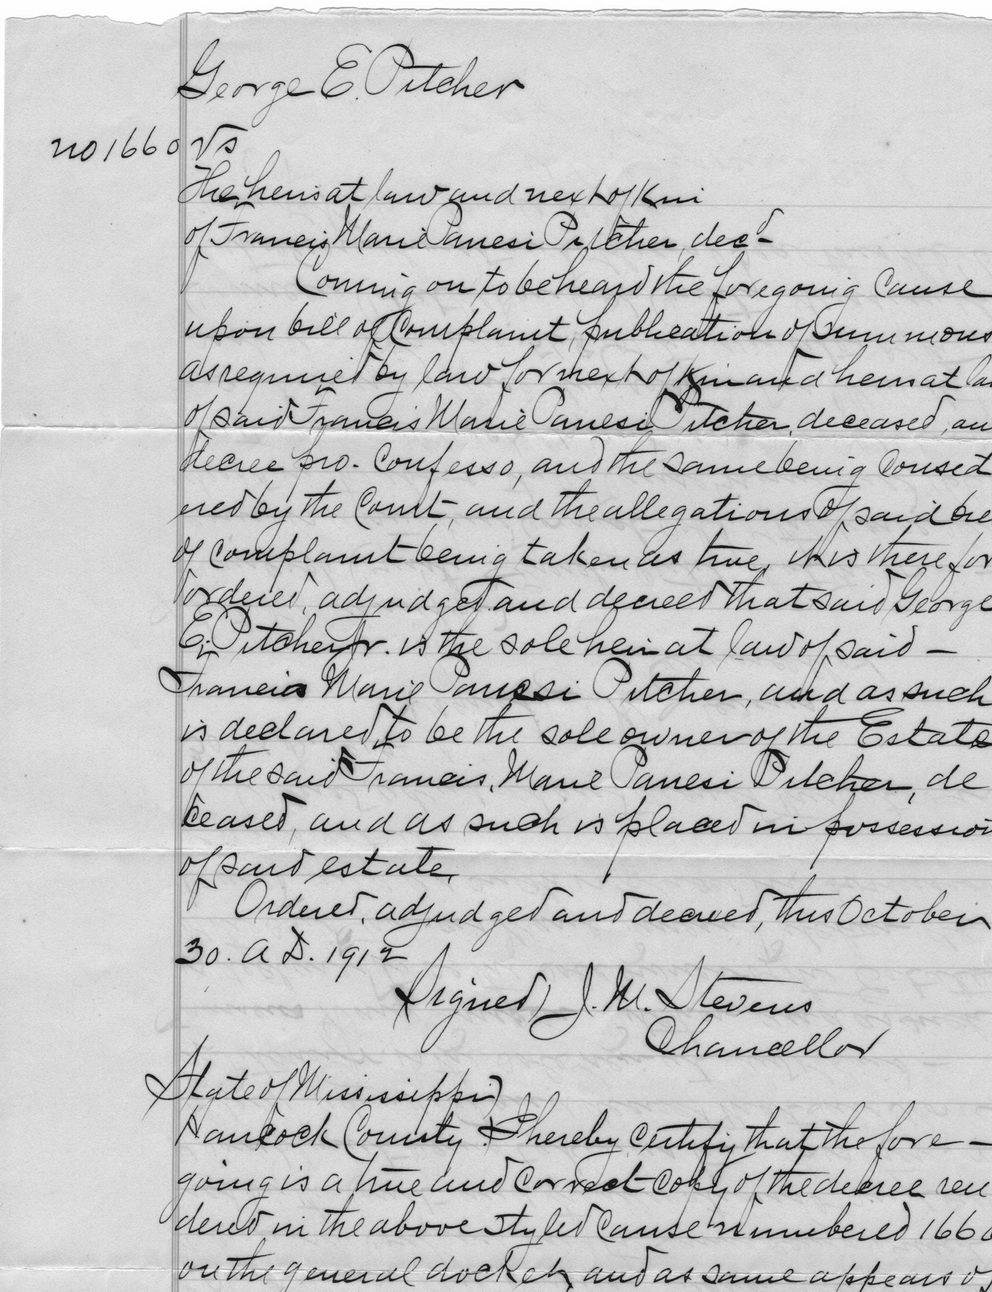 George E. Pitcher
no 1660 vs
The heirs at law and next of Kin
of Francis Marie Panesi Pitcher, decd-
Coming on to be heard the foregoing cause
upon bill of Complaint, publication of summons
as required by law for next of Kin and heirs at la
of said Francis Marie Panesi Pitcher, deceased, an
decree pro. Confesso, and the same being Consid
ered by the Court, and the allegations of said bi
of complaint being taken as true, it is therefor
ordered, adjudged and decreed that said George
E. Pitcher, Jr. is the sole heir at law of said -
Francis Marie Panesi Pitcher, and as such
is declared to be the sole owner of the Estate
of the said Francis, Marie Panesi Pitcher, de
ceased, and as such is placed in possession
of said estate.
Ordered, adjudged and decreed, this October
30. A.D. 1912
Signed) J. M. Stevens
Chancellor
State of Mississippi)
Hancock County I hereby certify that the fore -
going is a true and correct copy of the decree ren
dered in the above styled cause numbered 1660
on the general docket, and as same appears of